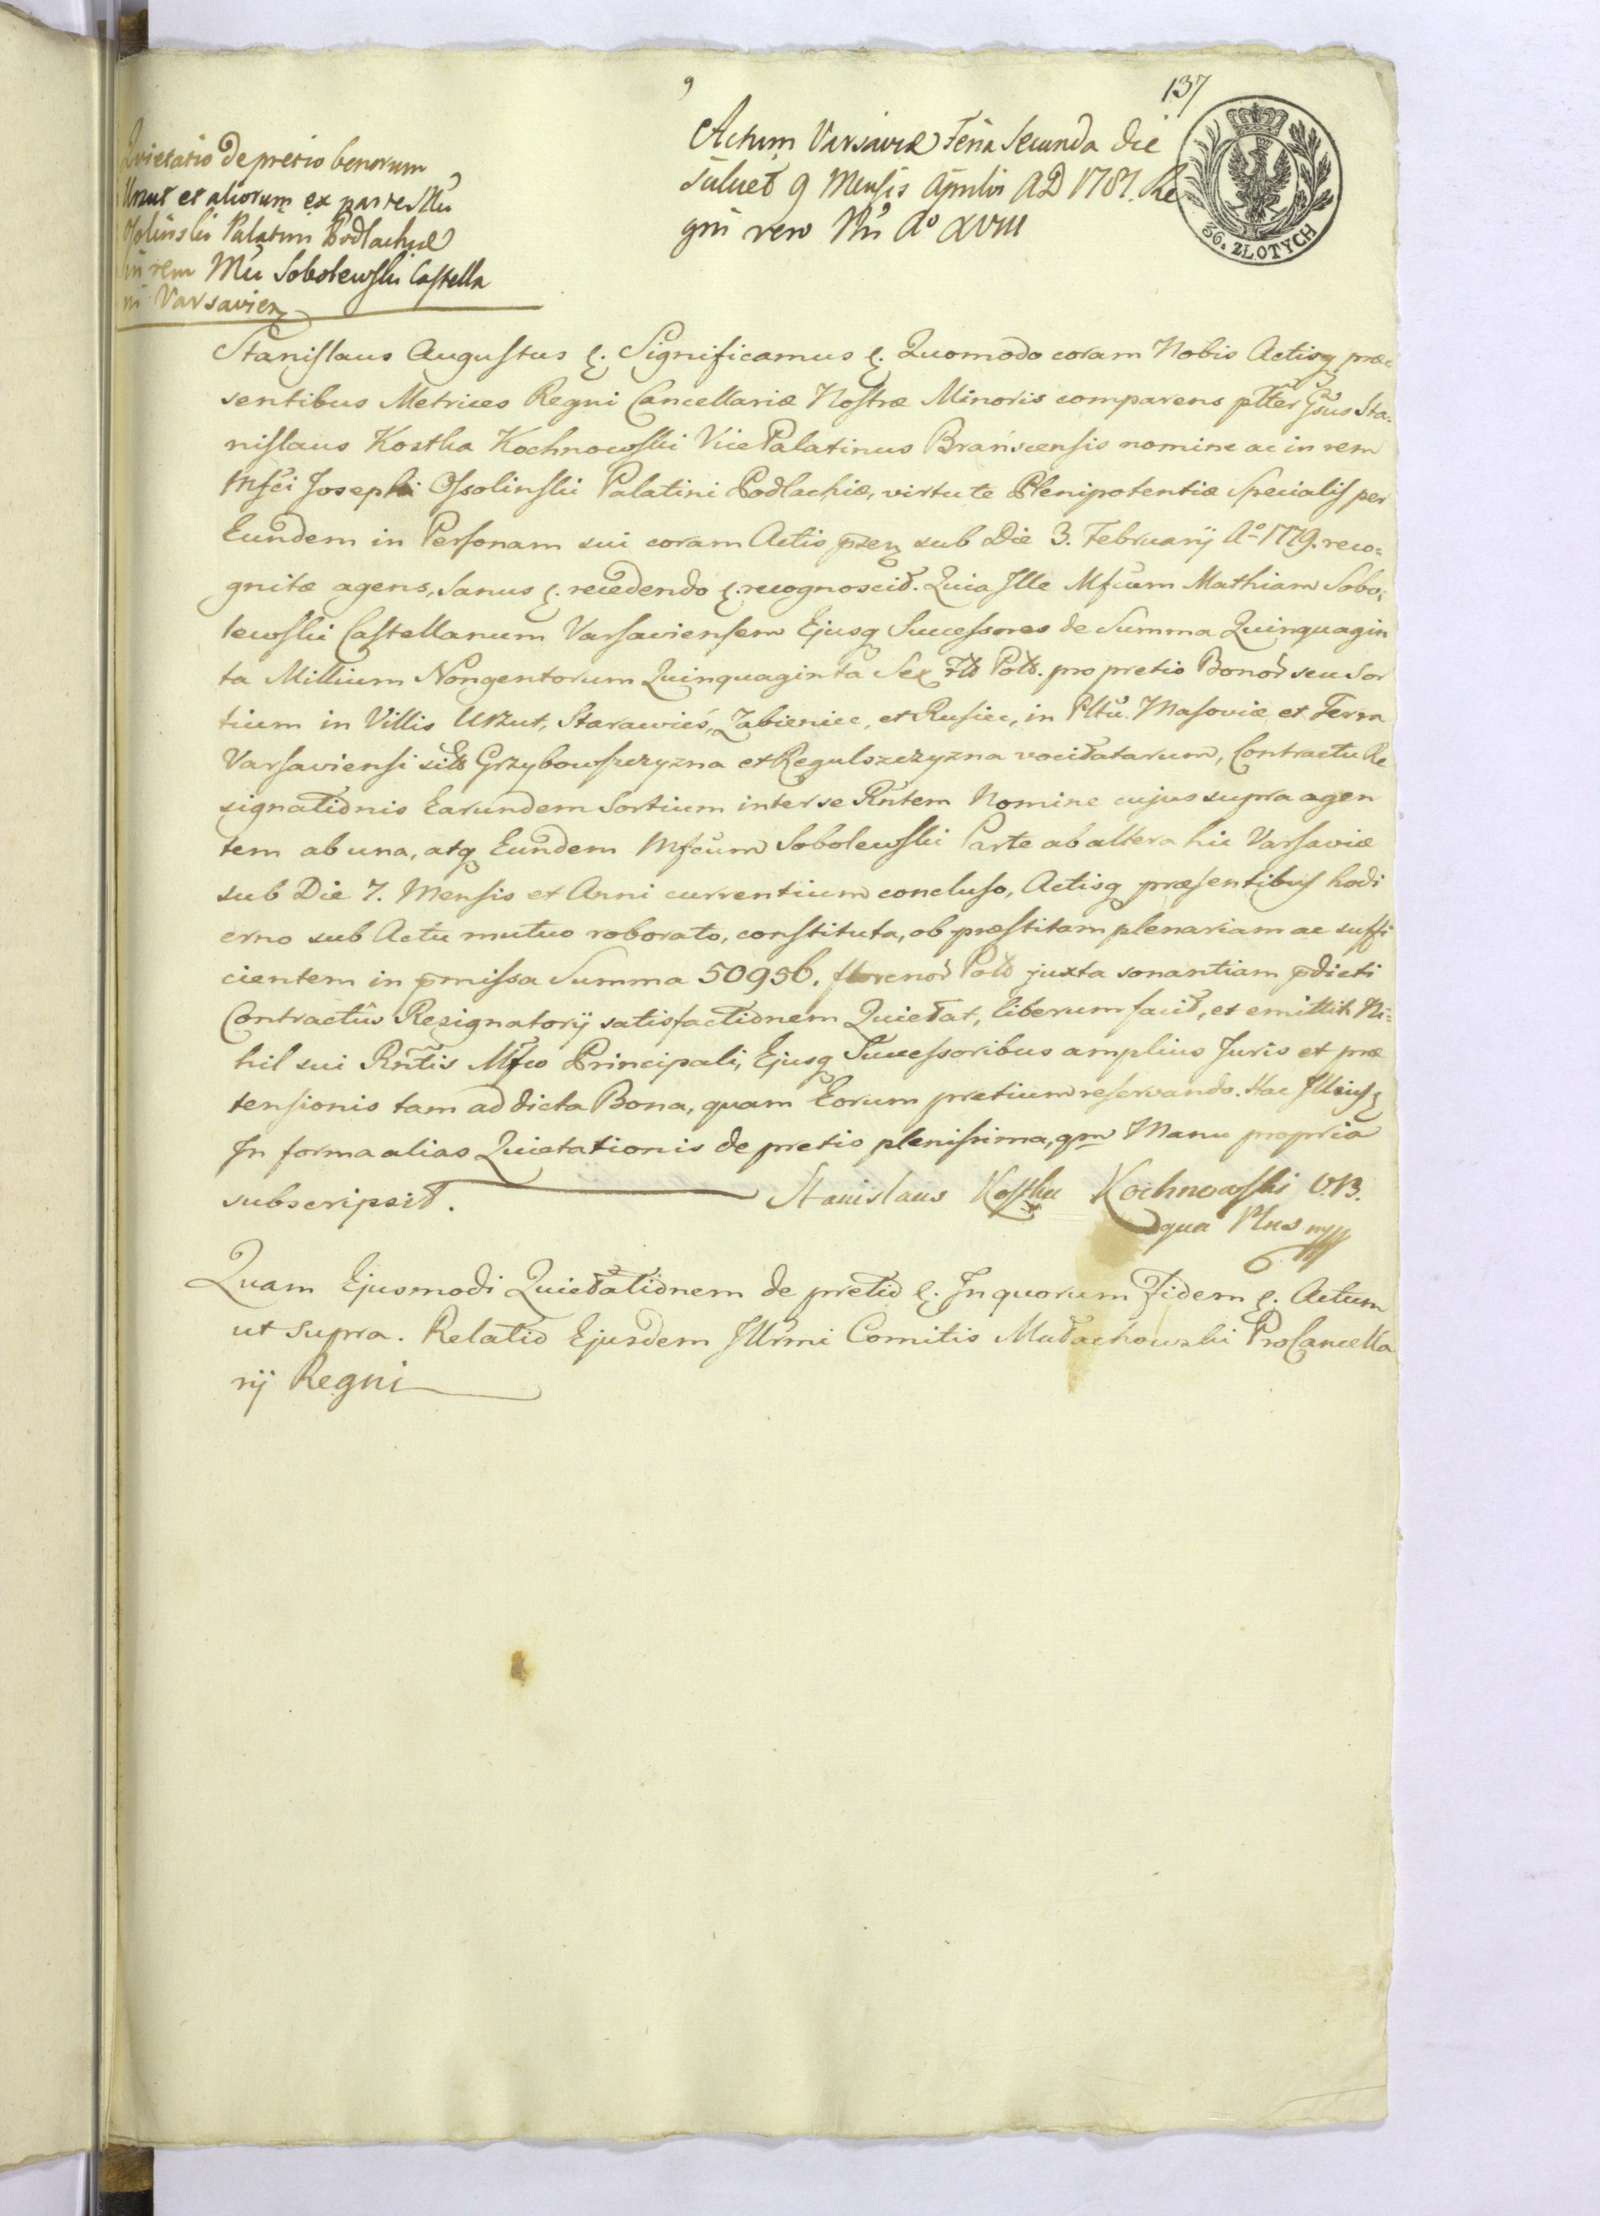 9
137
36. ZŁOTYCH
Quietatio de pretio bonorum
Urzut et aliorum ex parte Mci
Ossolinski Palatini Podlachiæ
in rem Mci Sobolewski Castella
ni Varsavien
Actum Varsaviæ Feria Secunda die
scilicet 9 Mensis Aprilis AD 1781. Re
gni vero Nri Ao XVIII
Stanislaus Augustus &. Significamus &. Quomodo coram Nobis Actisq præ
sentibus Metrices Regni Cancellariæ Nostræ Minoris comparens plter Gsus Sta-
nislaus Kostka Kochnowski Vice Palatinus Branscensis nomine ac in rem
Mfci Josephi Ossolinski Palatini Podlachiæ, virtute Plenipotentiæ specialis per
Eundem in Personam sui coram Actis psen sub Die 3. Februarij Ao 1779. reco-
gnitæ agens, Sanus &. recedendo &. recognoscit. Quia Ille Mfcum Mathiam Sobo-
lewski Castellanum Varsaviensem Ejusq Successores de Summa Quinquagin
ta Millium Nongentorum Quinquaginta Sex flo Polo. pro pretio Bonor seu Sor
tium in Villis Urzut, Starawieś, Zabieniec, et Rusiec, in Pltu. Masoviæ et Terra
Varsaviensi sitis Grzybowszczyzna et Regulszczyzna vocitatarum, Contractu Re
signationis Earundem Sortium inter se Rntem Nomine cujus supra agen
tem ab una, atq Eundem Mfcum Sobolewski Parte ab altera hic Varsaviæ
sub Die 7. Mensis et Anni currentium concluso, Actisq præsentibus hodi
erno sub Actu mutuo roborato, constituta, ob præstitam plenariam ac suffi
cientem in pmissa Summa 50956. florenor Polo juxta sonantiam pdicti
Contractûs Resignatorij satisfactionem Quietat, liberum facit, et emittit Ni-
hil sui Rntis Mfco Principali, Ejusq Successoribus amplius Juris et præ
tensionis tam ad dicta Bona, quam Eorum pretium reservando. Hac Illius
In forma alias Quietationis de pretio plenissima, qm Manu propria
subscripsit. Stanislaus Kostka Kochnowski V.B.
qua Plnus mpp
Quam Ejusmodi Quietationem de pretio &. In quorum Fidem &. Actum
ut supra. Relatio Ejusdem Illrmi Comitis Małachowski ProCancella
rij Regni